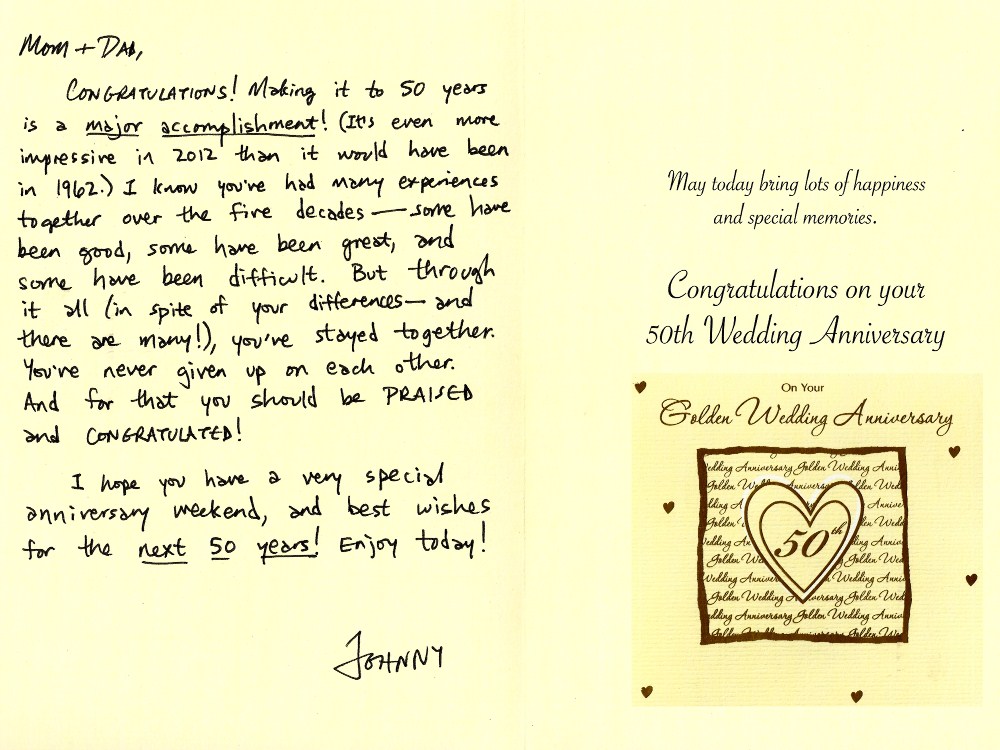 Mom + Dad,
CONGRATULATIONS! Making it to 50 years
is a major accomplishment! (It's even more
impressive in 2012 than it would have been
in 1962.) I know you've had many experiences
together over the five decades — some have
been good, some have been great, and
some have been difficult. But through
it all (in spite of your differences — and
there are many!), you've stayed together.
You've never given up on each other.
And for that you should be PRAISED
and CONGRATULATED!
I hope you have a very special
anniversary weekend, and best wishes
for the next 50 years! Enjoy today!
JOHNNY
May today bring lots of happiness
and special memories.
Congratulations on your
50th Wedding Anniversary
On Your
Golden Wedding Anniversary
edding Anniversary Golden Wedding Anni
Golden Wedd
50th
Wedding Anniver
Golden Wedding Anniversary Golden Wedding
edding Anniversary Golden Wedding Anni